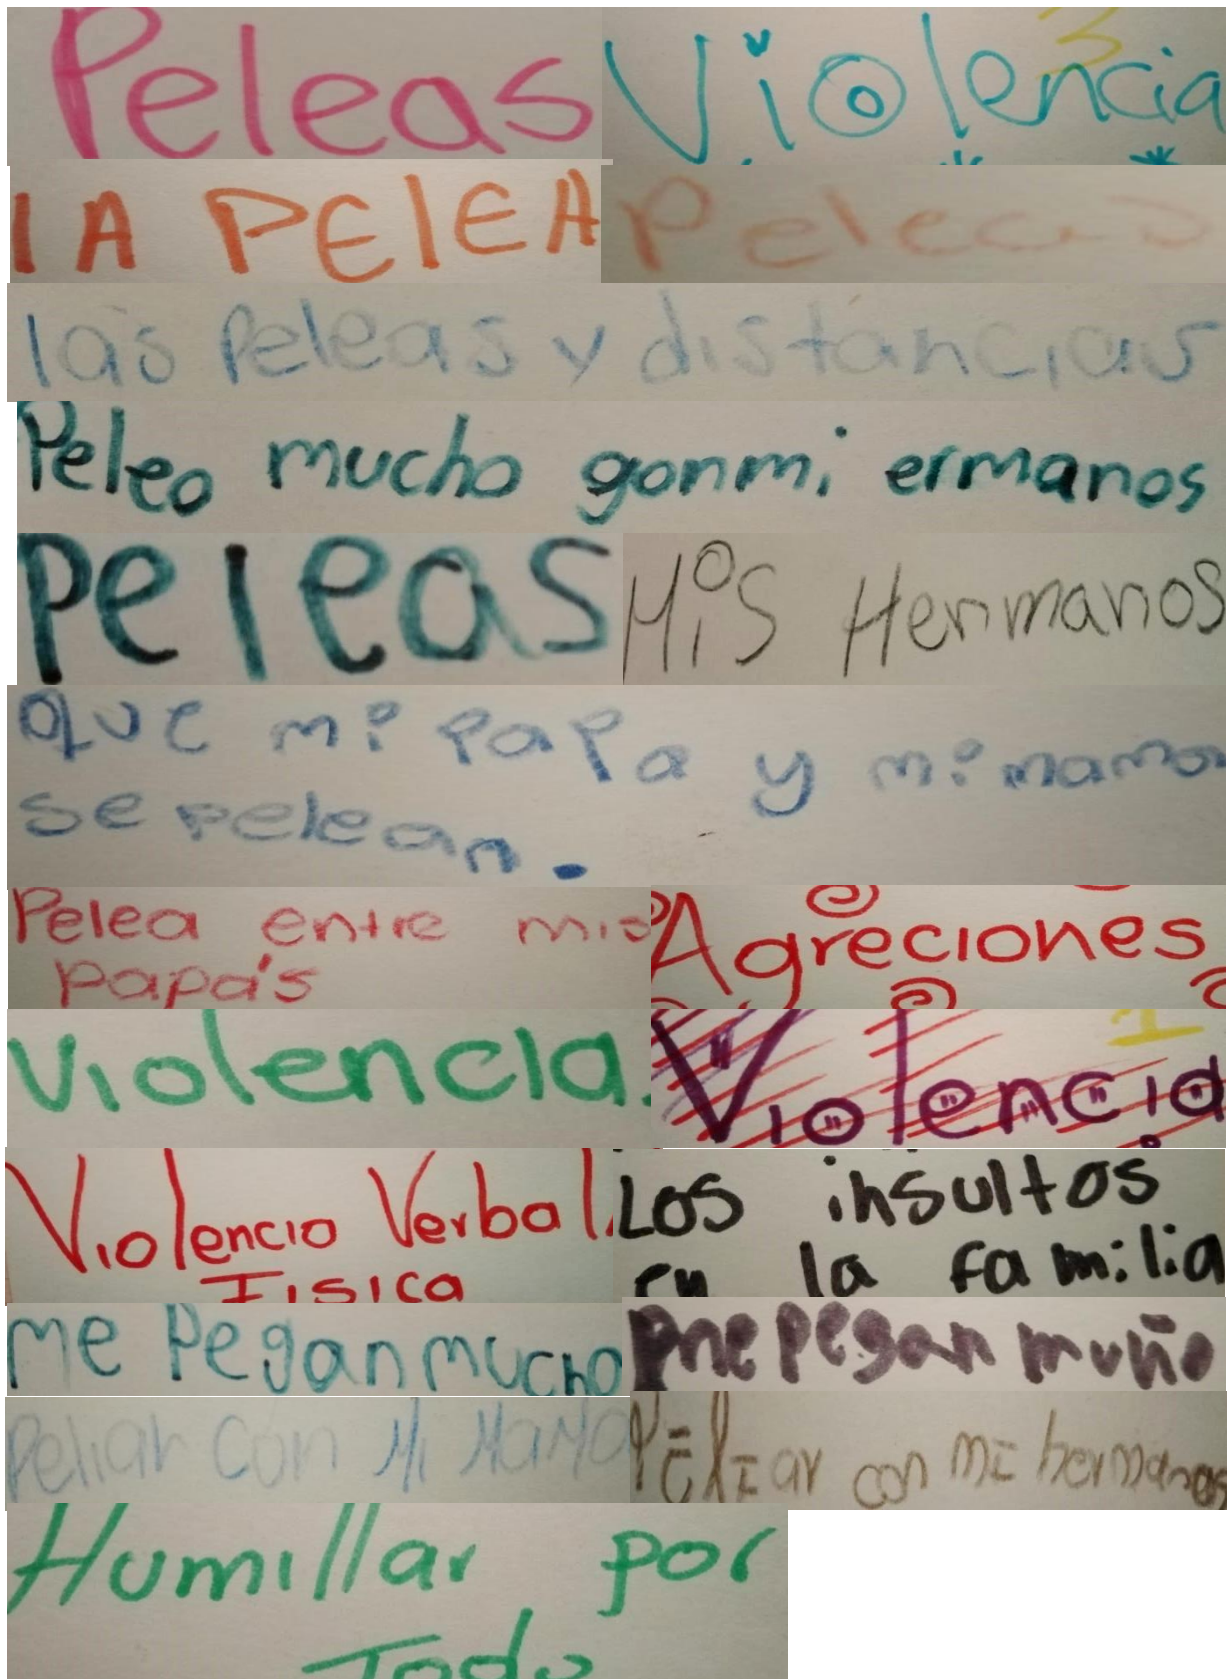 Peleas
Violencia
3
lA PElEA
Peleas
las Peleas y distancias
Peleo mucho gonmi ermanos
Peleas
Mis Hermanos
que mi papa y mi mama
se pelean.
Pelea entre mis
papa's
Agreciones
Violencia.
Violencia
1
Violencia Verbal
Fisica
Los insultos
en la familia
me Pegan mucho
me pegan muño
Peliar Con Mi MaMa
PELIar con mi hermanos
Humillar por
Todo